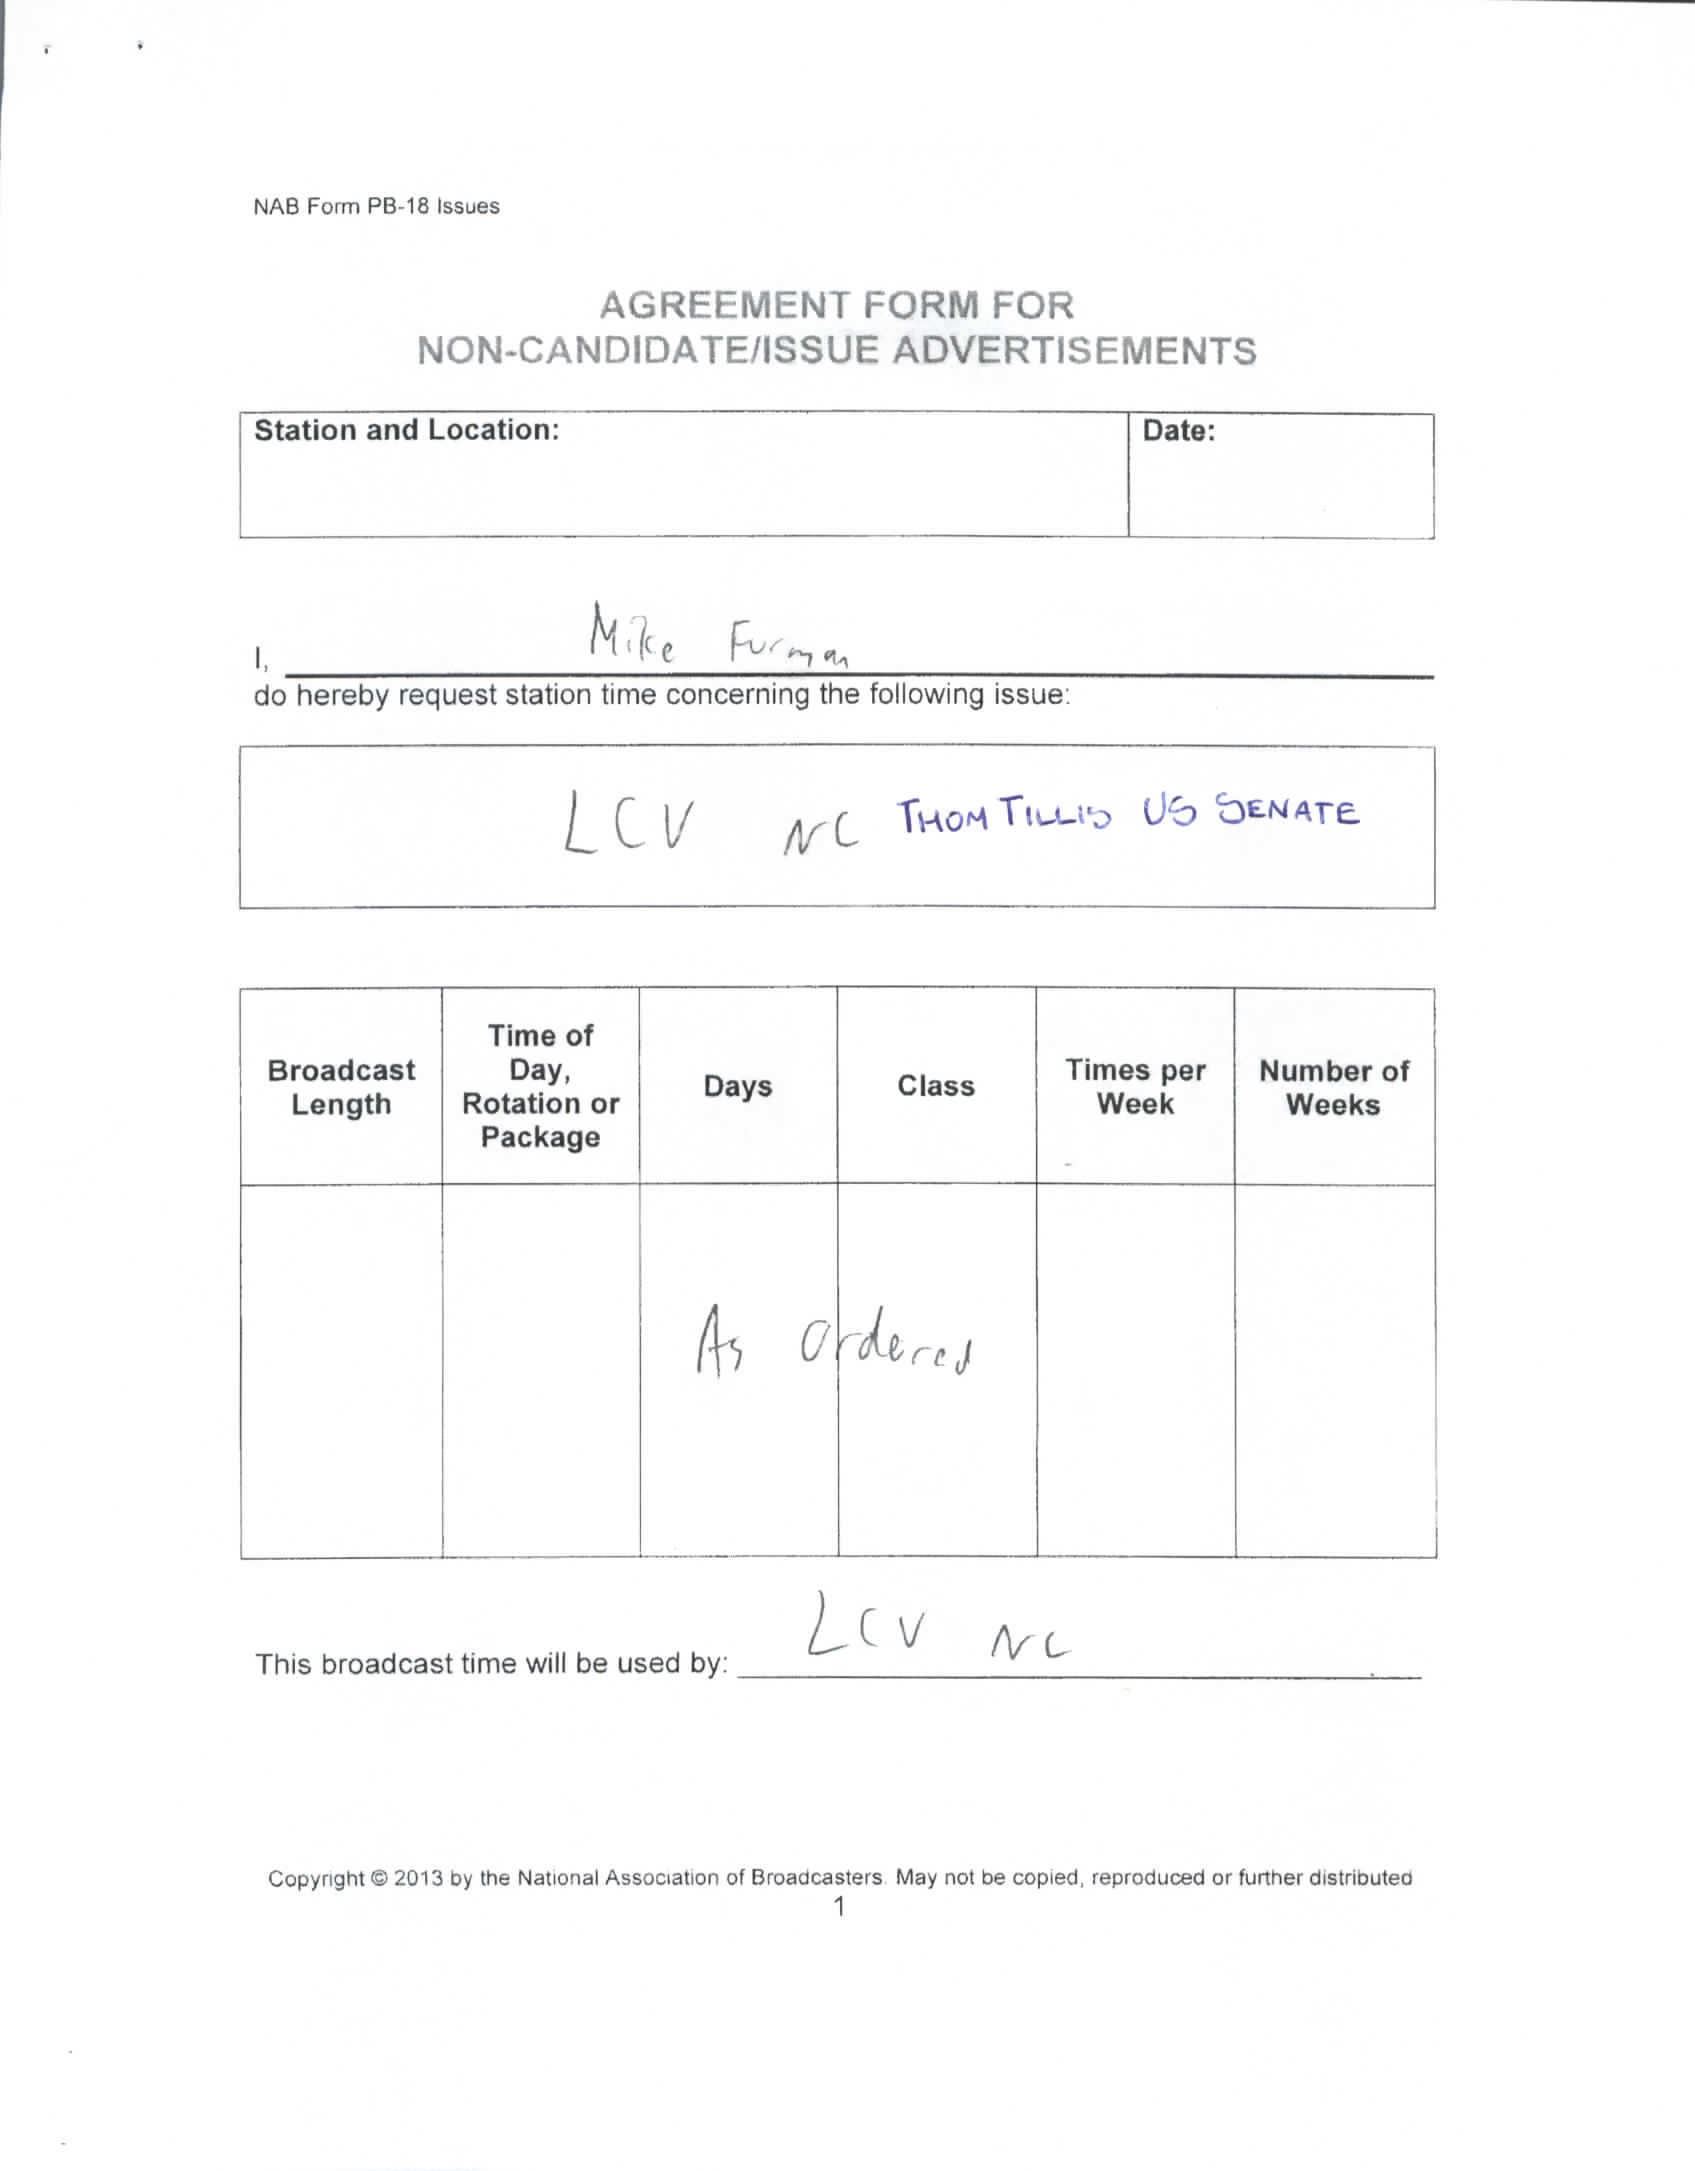 NAB Form PB-18 Issues
AGREEMENT FORM FOR
NON-CANDIDATE/ISSUE ADVERTISEMENTS
Station and Location:
Date:
I, Mike Furman
do hereby request station time concerning the following issue:
LCV NC THOM TILLIS US SENATE
Broadcast Length
Time of Day, Rotation or Package
Days
Class
Times per Week
Number of Weeks
As Ordered
This broadcast time will be used by: LCV NC
Copyright © 2013 by the National Association of Broadcasters. May not be copied, reproduced or further distributed
1